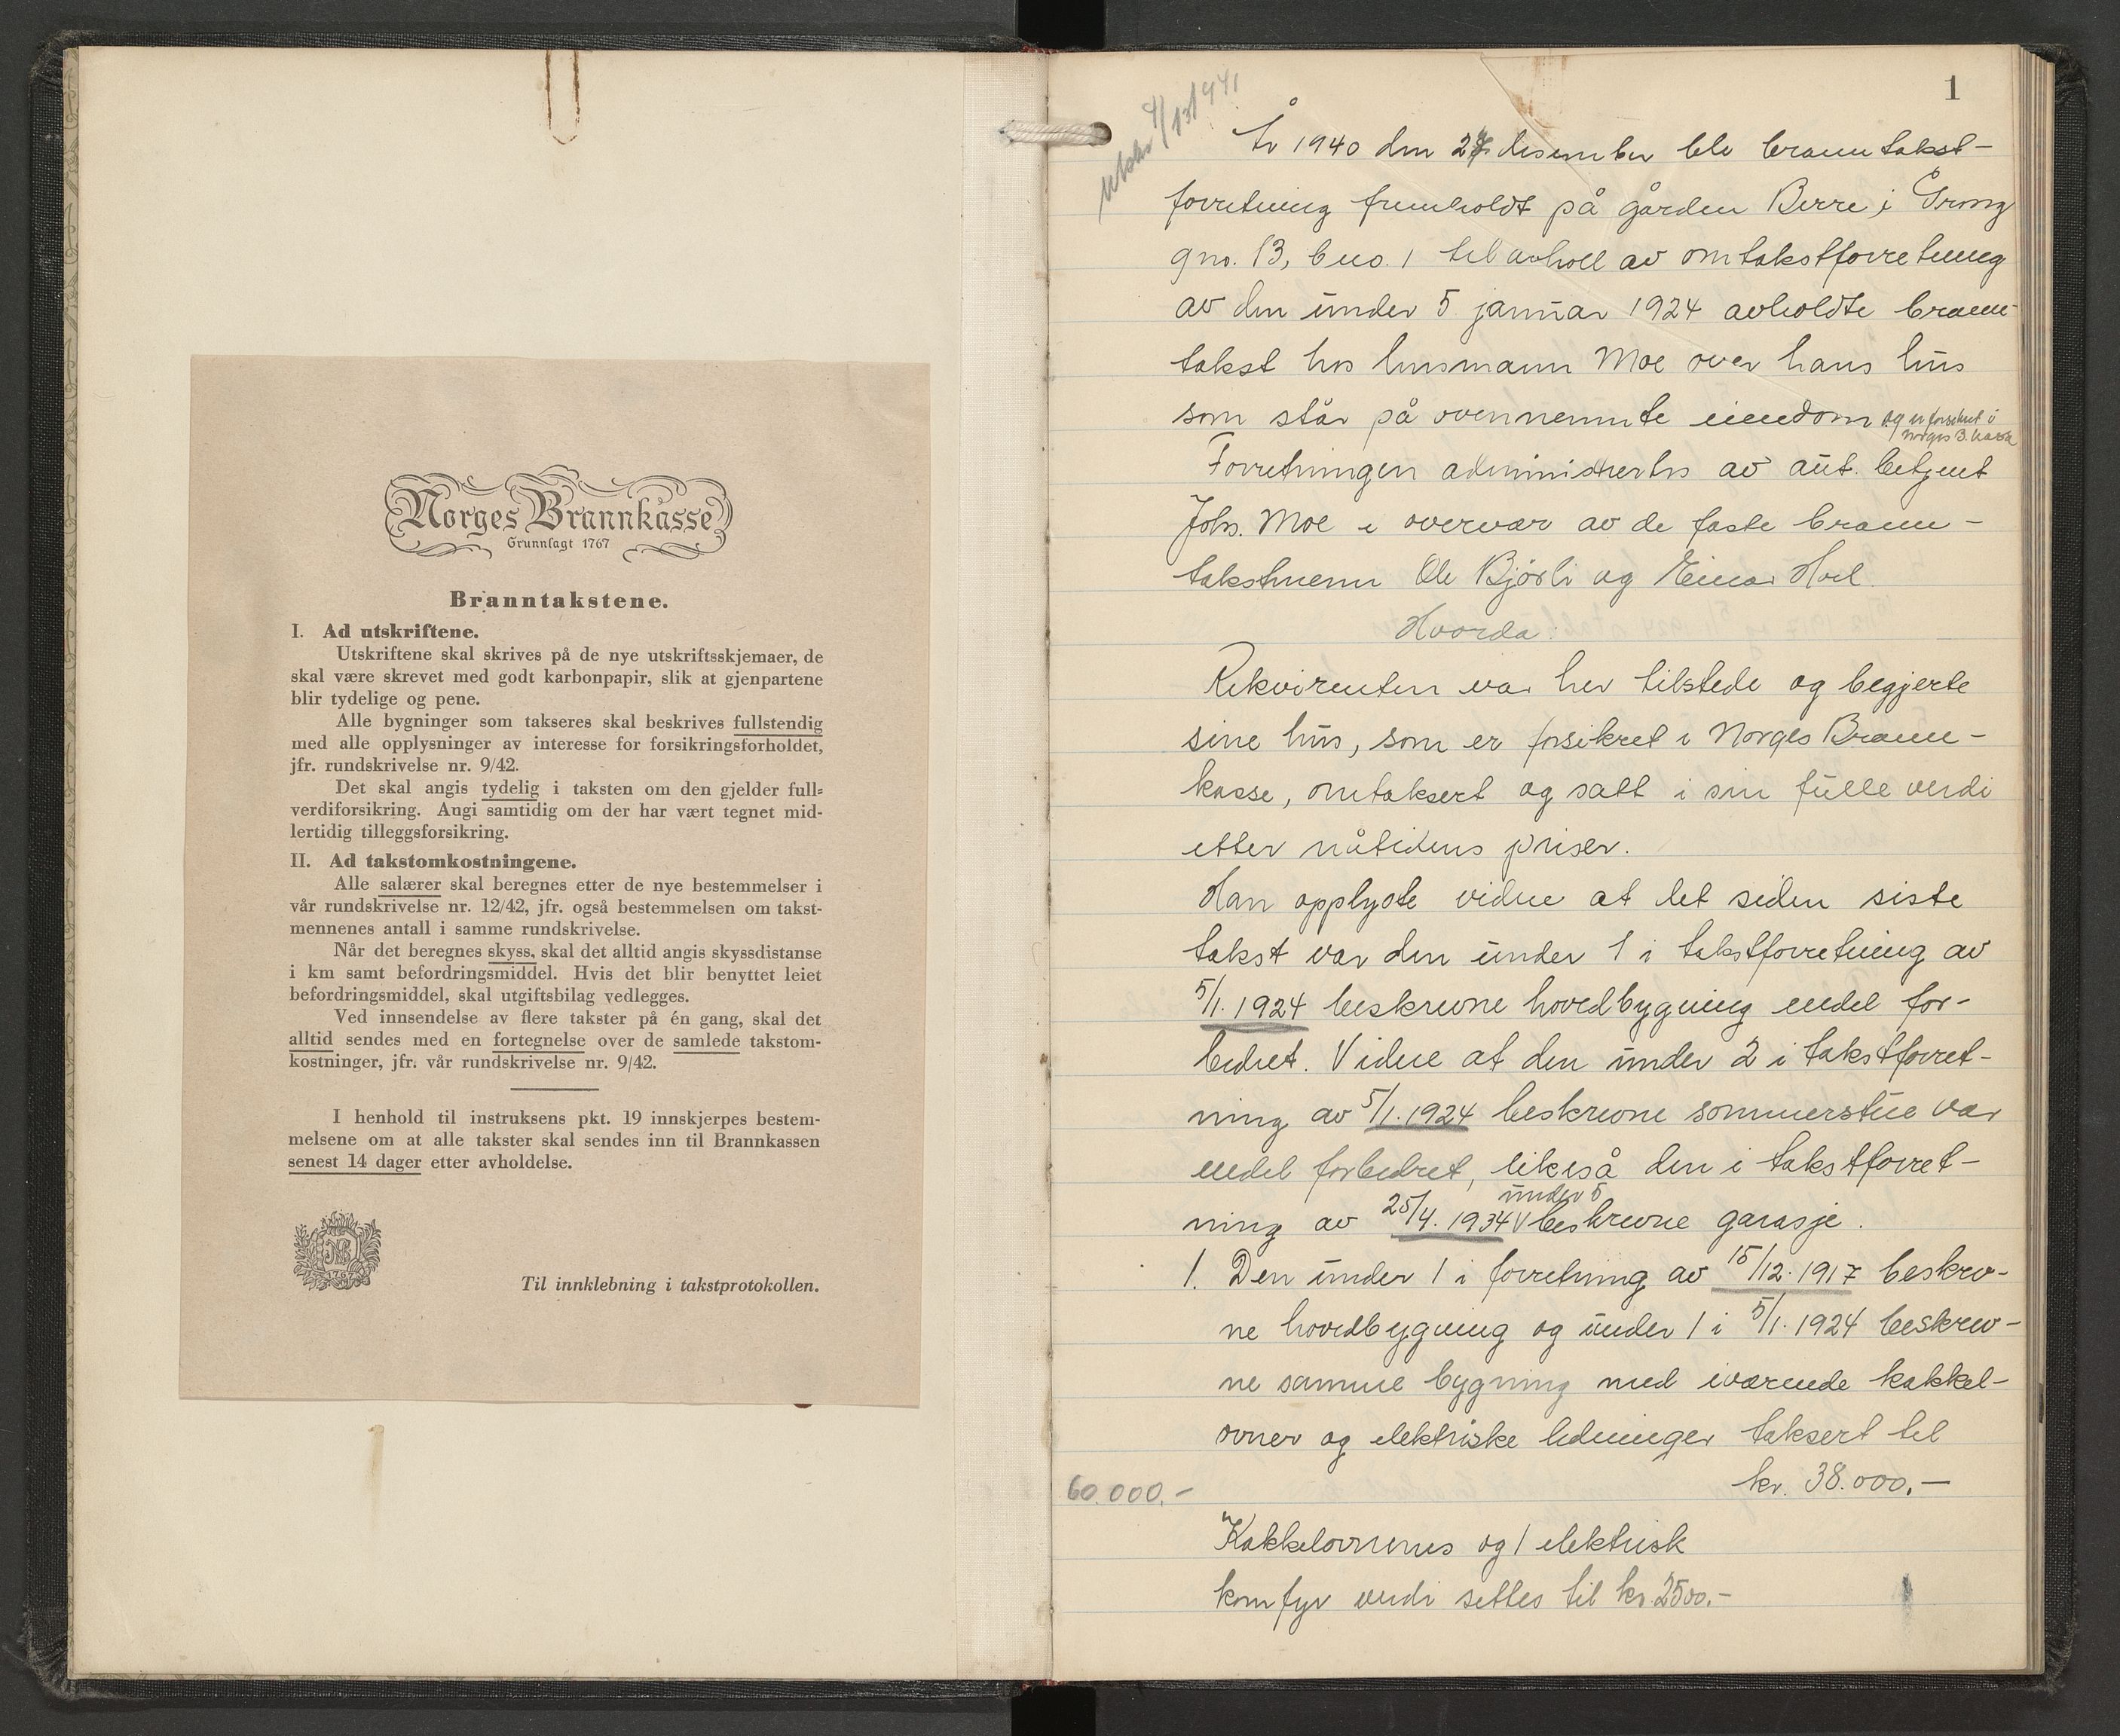 Norges Brannkasse
Grunnlagt 1767
Branntakstene.
I. Ad utskriftene.
Utskriftene skal skrives på de nye utskriftsskjemaer, de
skal være skrevet med godt karbonpapir, slik at gjenpartene
blir tydelige og pene.
Alle bygninger som takseres skal beskrives fullstendig
med alle opplysninger av interesse for forsikringsforholdet,
jfr. rundskrivelse nr. 9/42.
Det skal angis tydelig i taksten om den gjelder full-
verdiforsikring. Angi samtidig om der har vært tegnet mid-
lertidig tilleggsforsikring.
II. Ad takstomkostningene.
Alle salærer skal beregnes etter de nye bestemmelser i
vår rundskrivelse nr. 12/42, jfr. også bestemmelsen om takst-
mennenes antall i samme rundskrivelse.
Når det beregnes skyss, skal det alltid angis skyssdistanse
i km samt befordringsmiddel. Hvis det blir benyttet leiet
befordringsmiddel, skal utgiftsbilag vedlegges.
Ved innsendelse av flere takster på én gang, skal det
alltid sendes med en fortegnelse over de samlede takstom-
kostninger, jfr. vår rundskrivelse nr. 9/42.
I henhold til instruksens pkt. 19 innskjerpes bestem-
melsene om at alle takster skal sendes inn til Brannkassen
senest 14 dager etter avholdelse.
Til innklebning i takstprotokollen.
1
År 1940 den desember ble branntakst-
forretning fremholdt på gården Berre i Grong
gno. 13, bno. 1 til avholl av omtakstforretning
av den under 5 januar 1924 avholdte brann-
takst hos lensmann Moe over hans hus
som står på ovennemnte eiendom og er forsikret i
Norges B.kasse
Forretningen administrertes av aut. betjent
Johs. Moe i overvær av de faste brann-
takstmenn Ole Bjørli og Einar Hoel.
Hvorda:
Rekvirenten var her tilstede og begjerte
sine hus, som er forsikret i Norges Brann-
kasse, omtaksert og satt i sin fulle verdi
etter nåtidens priser.
Han opplyste videre at det siden siste
takst var den under 1 i takstforretning av
5/1. 1924 beskrevne hovedbygning endel for-
bedret. Videre at den under 2 i takstforret-
ning av 5/1. 1924 beskrevne sommerstue var
endel forbedret, likeså den i takstforret-
under 5
ning av 25/4. 1934 V beskrevne garasje.
1. Den under 1 i forretning av 15/12. 1917 beskrev-
ne hovedbygning og under 1 i 5/1. 1924 beskrev-
ne samme bygning med iværende kakkel-
ovner og elektriske ledninger taksert til
60.000.- kr. 38.000.-
Kakkelovnenes og 1 elektrisk
komfyr verdi settes til kr. 2500.-